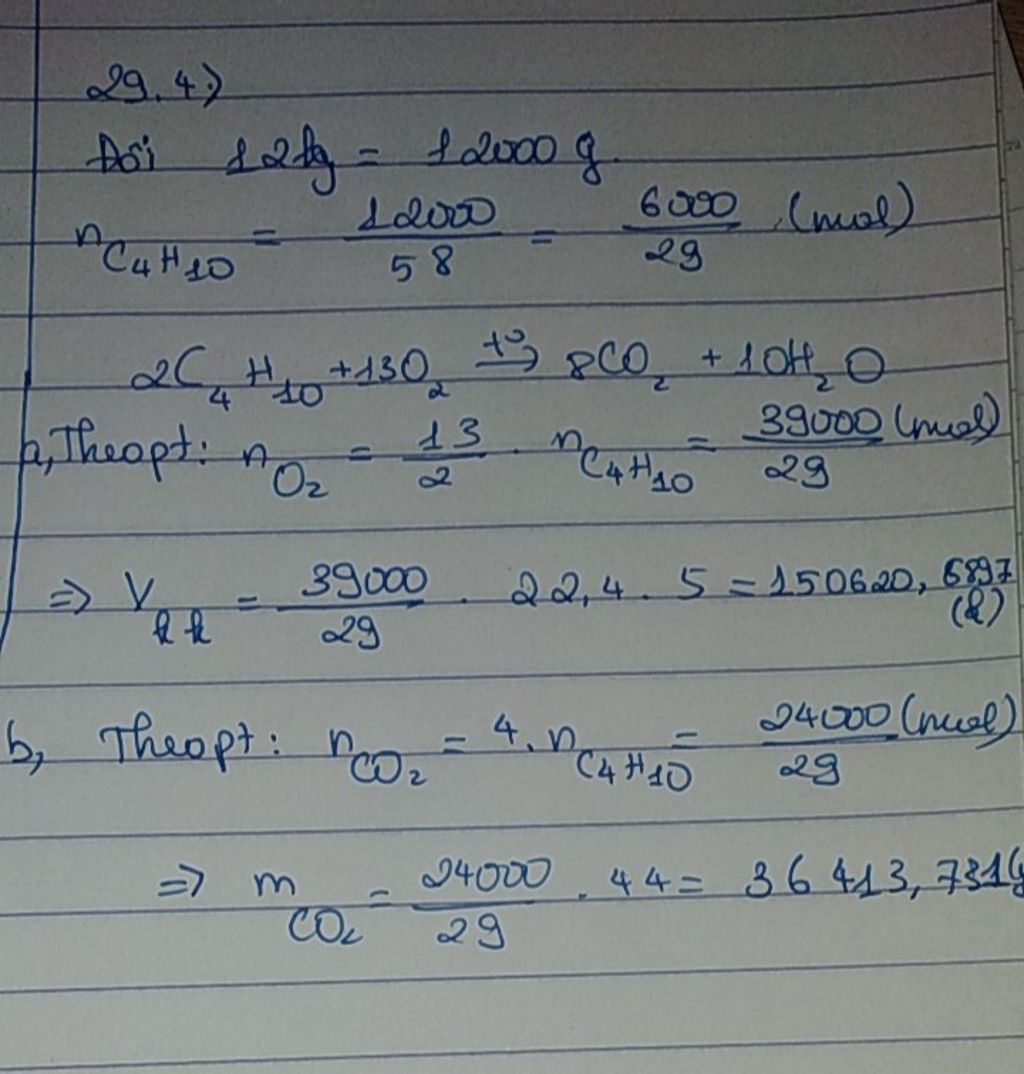 29.4)
Đổi 12kg = 12000 g.
n C₄H₁₀ = 12000/58 = 6000/29 (mol)
2C₄H₁₀ + 13O₂ t°→ 8CO₂ + 10H₂O
a, Theo pt: n O₂ = 13/2 . n C₄H₁₀ = 39000/29 (mol)
=> V kk = 39000/29 . 22,4 . 5 = 150620,6897 (l)
b, Theo pt: n CO₂ = 4. n C₄H₁₀ = 24000/29 (mol)
=> m CO₂ = 24000/29 . 44 = 36413,731(g